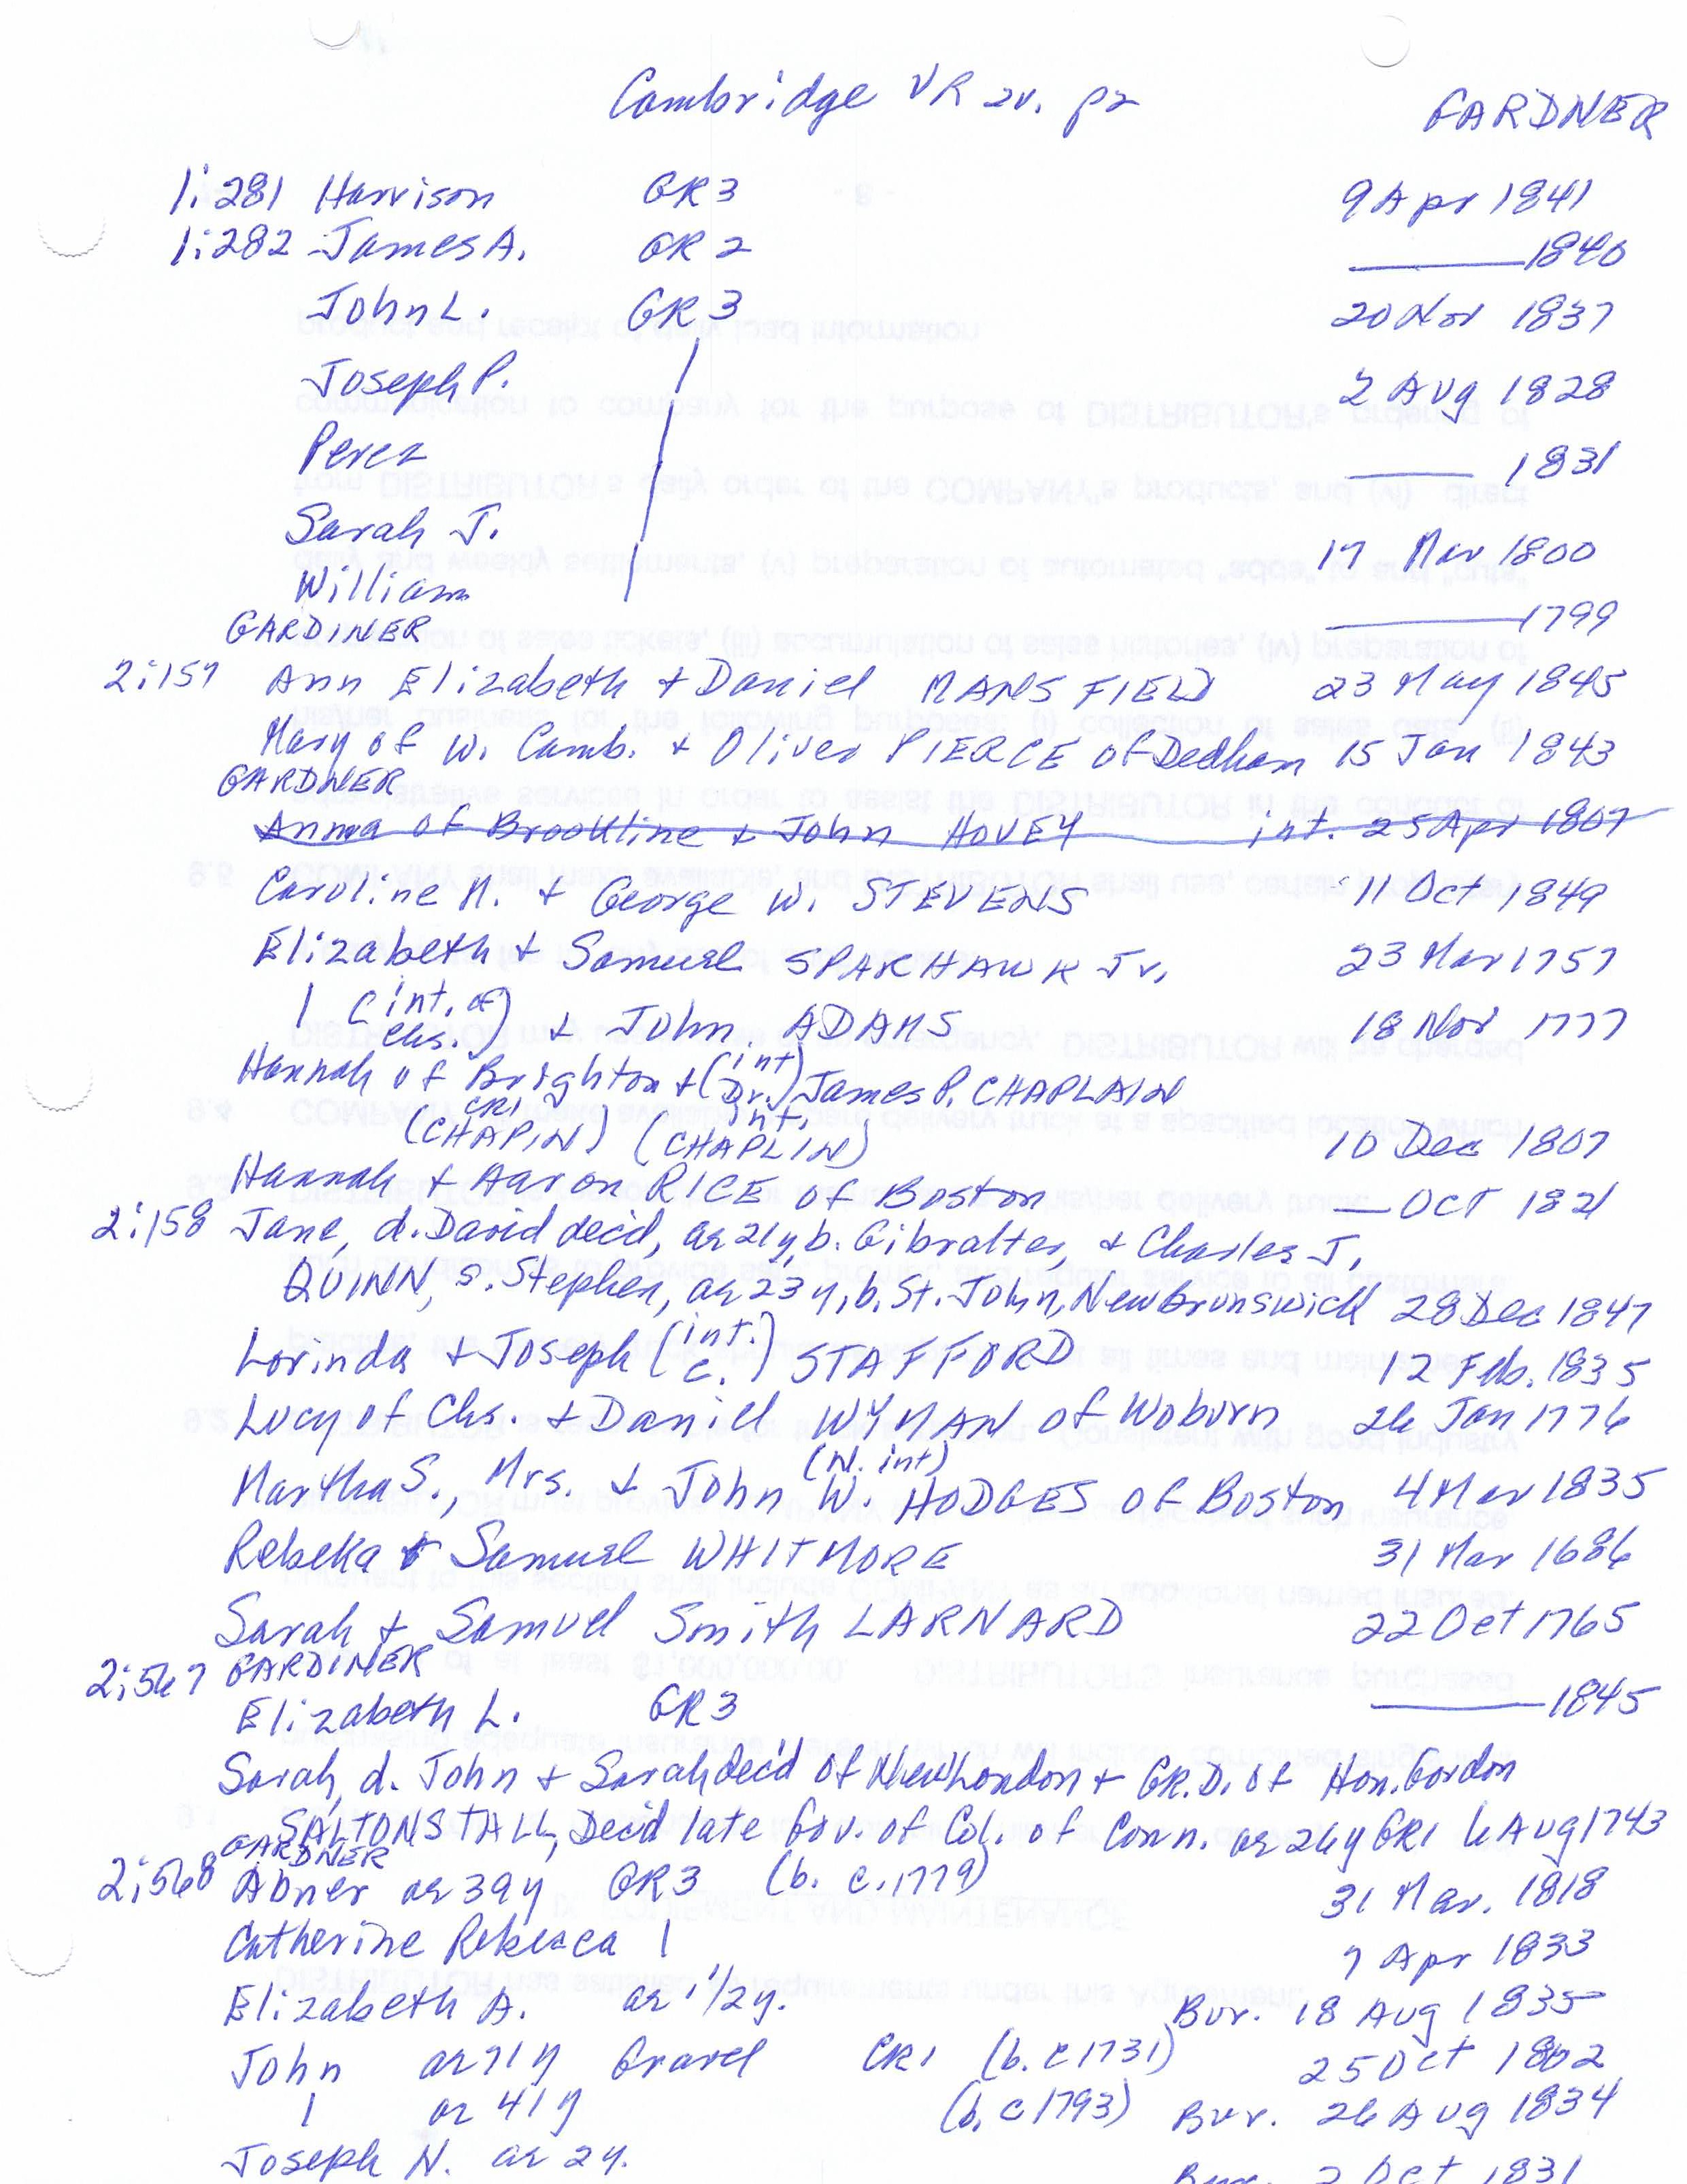 Cambridge VR 2v. p2 GARDNER
1:281 Harrison GR3 9 Apr 1841
1:282 James A. GR2 —— 1840
John L. GR3 20 Nov 1837
Joseph P. | 2 Aug 1828
Perez | —— 1831
Sarah J. | 17 Mar 1800
William | —— 1799
GARDINER
2:157 Ann Elizabeth + Daniel MANSFIELD 23 May 1845
Mary of W. Camb. + Oliver PIERCE of Dedham 15 Jan 1843
GARDNER
Anna of Brookline + John HOVEY int. 25 Apr 1807
Caroline M. + George W. STEVENS 11 Oct 1849
Elizabeth + Samuel SPARHAWK Jr. 23 Mar 1757
| (int. of Chs.) + John ADAMS 18 Nov 1777
Hannah of Brighton + (int Dr.) James P. CHAPLAIN
CR1 int.
(CHAPIN) (CHAPLIN) 10 Dec 1807
Hannah + Aaron RICE of Boston — OCT 1821
2:158 Jane, d. David decd, ae 21y, b. Gibralter, + Charles J.
QUINN, s. Stephen, ae 23 y, b. St. John, New Brunswick 28 Dec 1847
Lorinda + Joseph (int. C.) STAFFORD 12 Feb. 1835
Lucy of Chs. + Daniel WYMAN of Woburn 26 Jan 1776
(N. int)
Martha S., Mrs. + John W. HODGES of Boston 4 Mar 1835
Rebeka + Samuel WHITMORE 31 Mar 1686
Sarah + Samuel Smith LARNARD 22 Oct 1765
2:567 GARDINER
Elizabeth L. GR3 —— 1845
Sarah, d. John + Sarah dec'd of New London + GR.D. of Hon. Gordon
SALTONSTALL, Dec'd late Gov. of Col. of Conn. ae 26y GR1 6 Aug 1743
GARDNER
2:568 Abner ae 39 y GR3 (b. c. 1779) 31 Mar. 1818
Catherine Rebecca | 7 Apr 1833
Elizabeth A. ae 1 1/2 y. Bur. 18 Aug 1835
John ae 71 y Gravel CR1 (b. c 1731) 25 Oct 1802
| ae 41 y (b. c 1793) Bur. 26 Aug 1834
Joseph N. ae 2 y. Bur. 2 Oct 1831